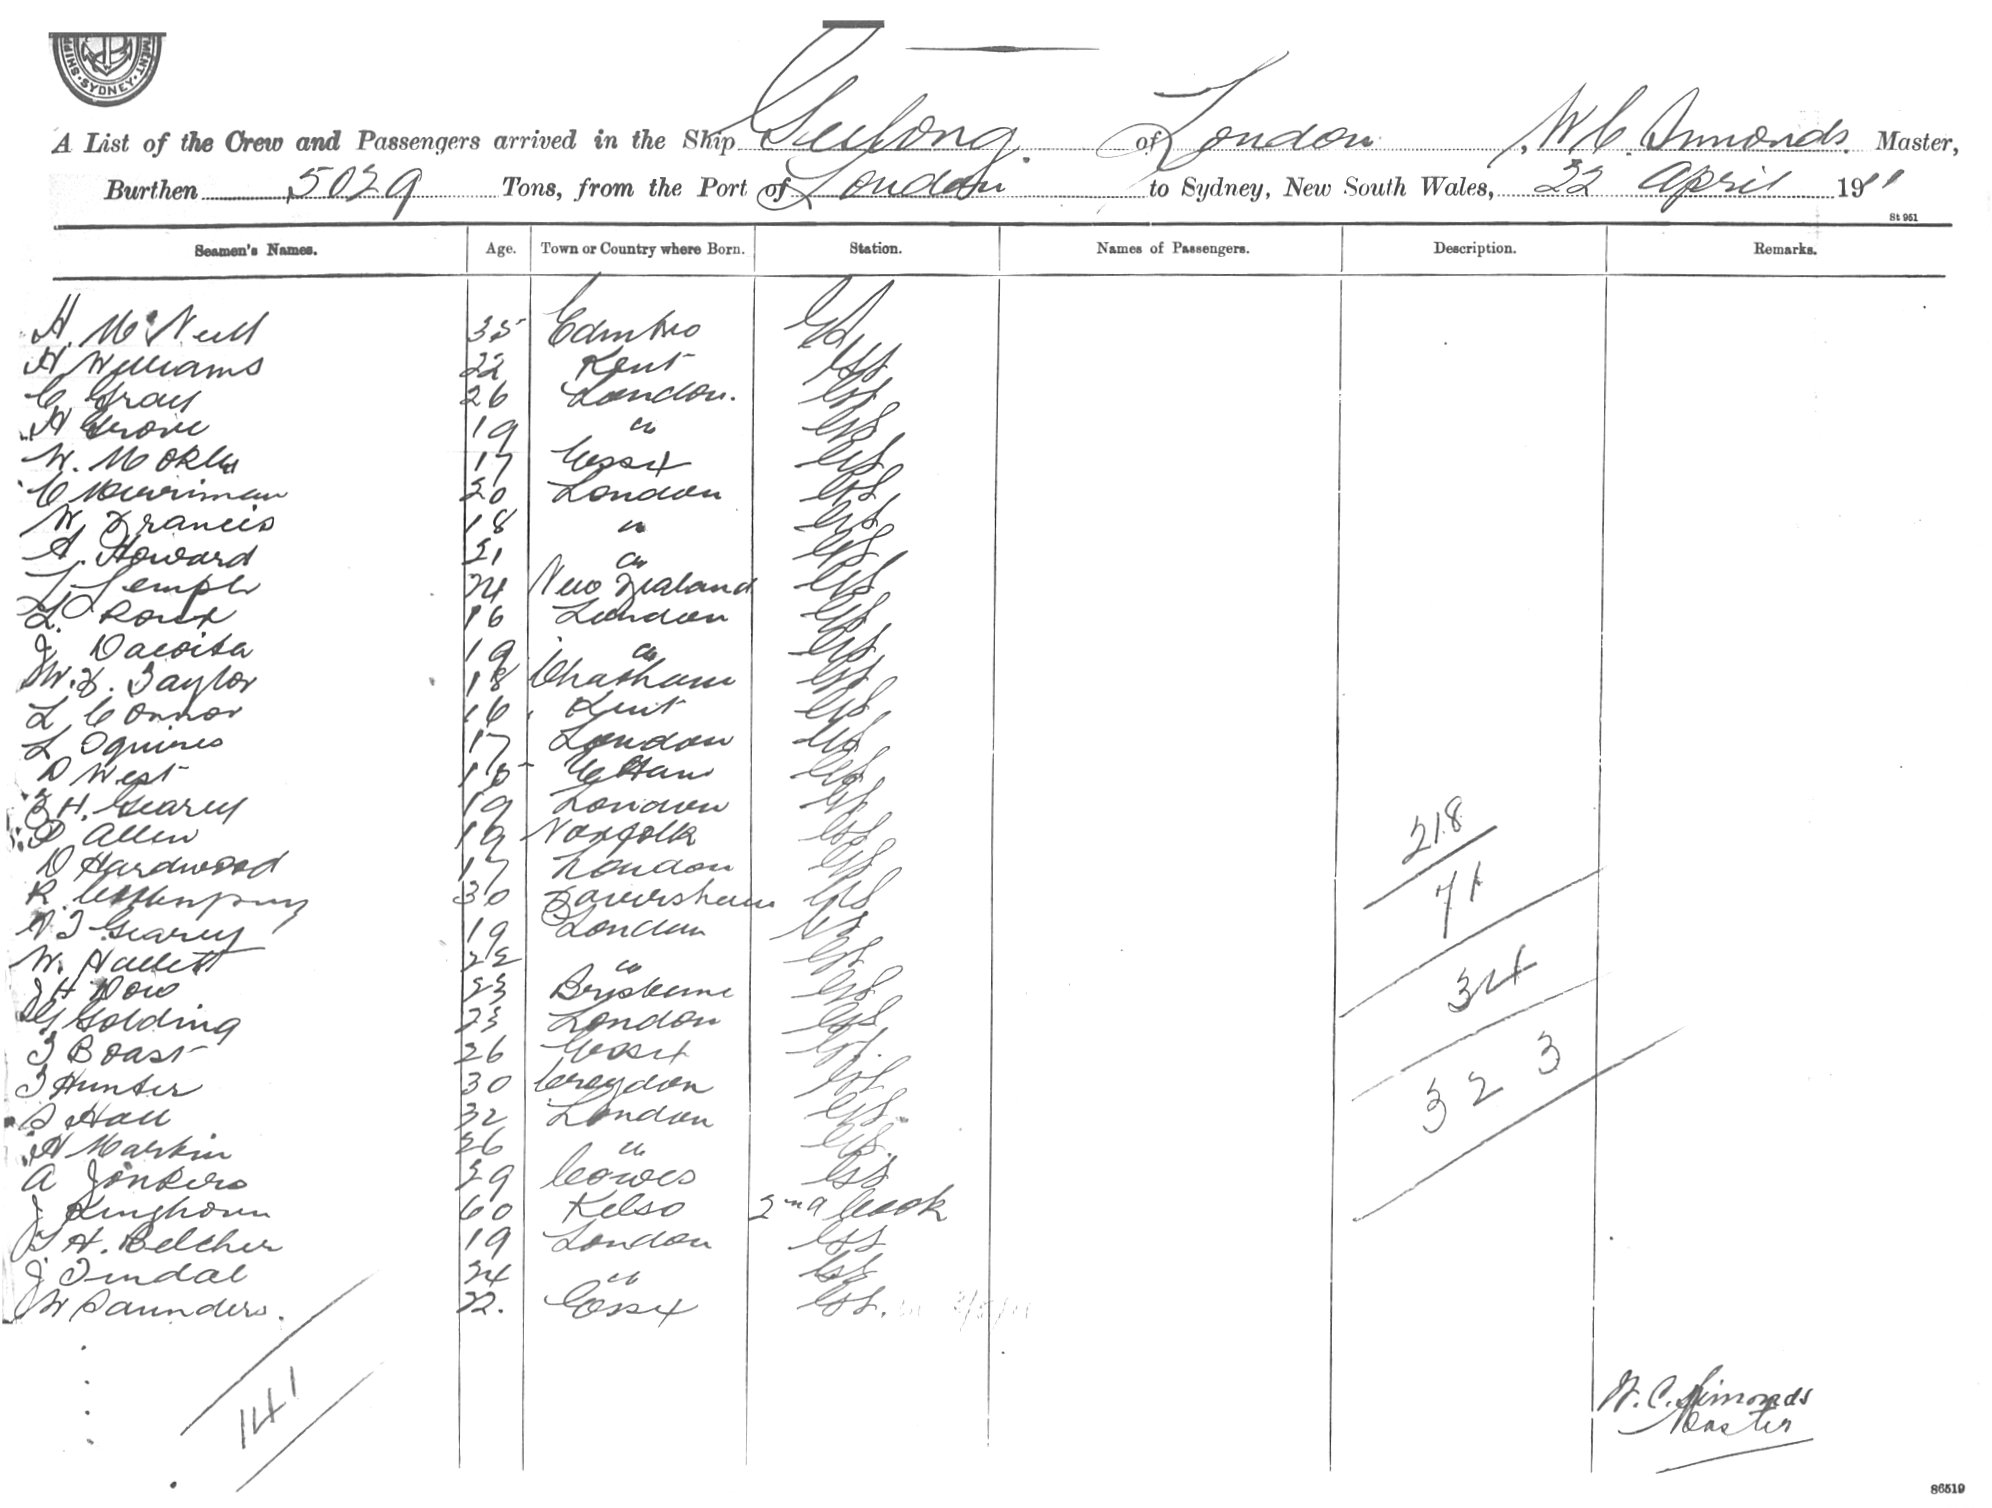 SHIP MENT. SYDNEY.
A List of the Crew and Passengers arrived in the Ship Geelong of London, W C Simonds. Master,
Burthen 5029 Tons, from the Port of London to Sydney, New South Wales, 22 April 1911
St 951
Seamen's Names. Age. Town or Country where Born. Station. Names of Passengers. Description. Remarks.
H. McNeill 35 Edinbro
H Williams 22 Kent
C Gray 26 London.
H Grove 19 "
W. 17 Essex
C Merriman 20 London
W Francis 18 "
A. Howard 21 "
T Temple 24 New Zealand
L. 16 London
J Dacosta 19 "
W. F. Taylor 18 Chatham
L Connor 16 Kent
L Squires 17 London
D West 15 E Ham
F H. Geary 19 London
P Allen 19 Norfolk
218
D Hardwood 17 London
R. 30 Faversham
71
A T Geary 19 London
W. Hallett 22 "
J H Dow 23 Brisbane
34
G Golding 23 London
T Boast 26 Essex
T Hunter 30 Croydon
323
S Hall 32 London
H Markin 26 "
A Jonkers 29 Cowes
J Kinghorn 60 Kelso 2nd Cook
T H. Belcher 19 London
J Tindal 24 "
W Saunders. 22. Essex
141
W. C. Simonds
Master
86519